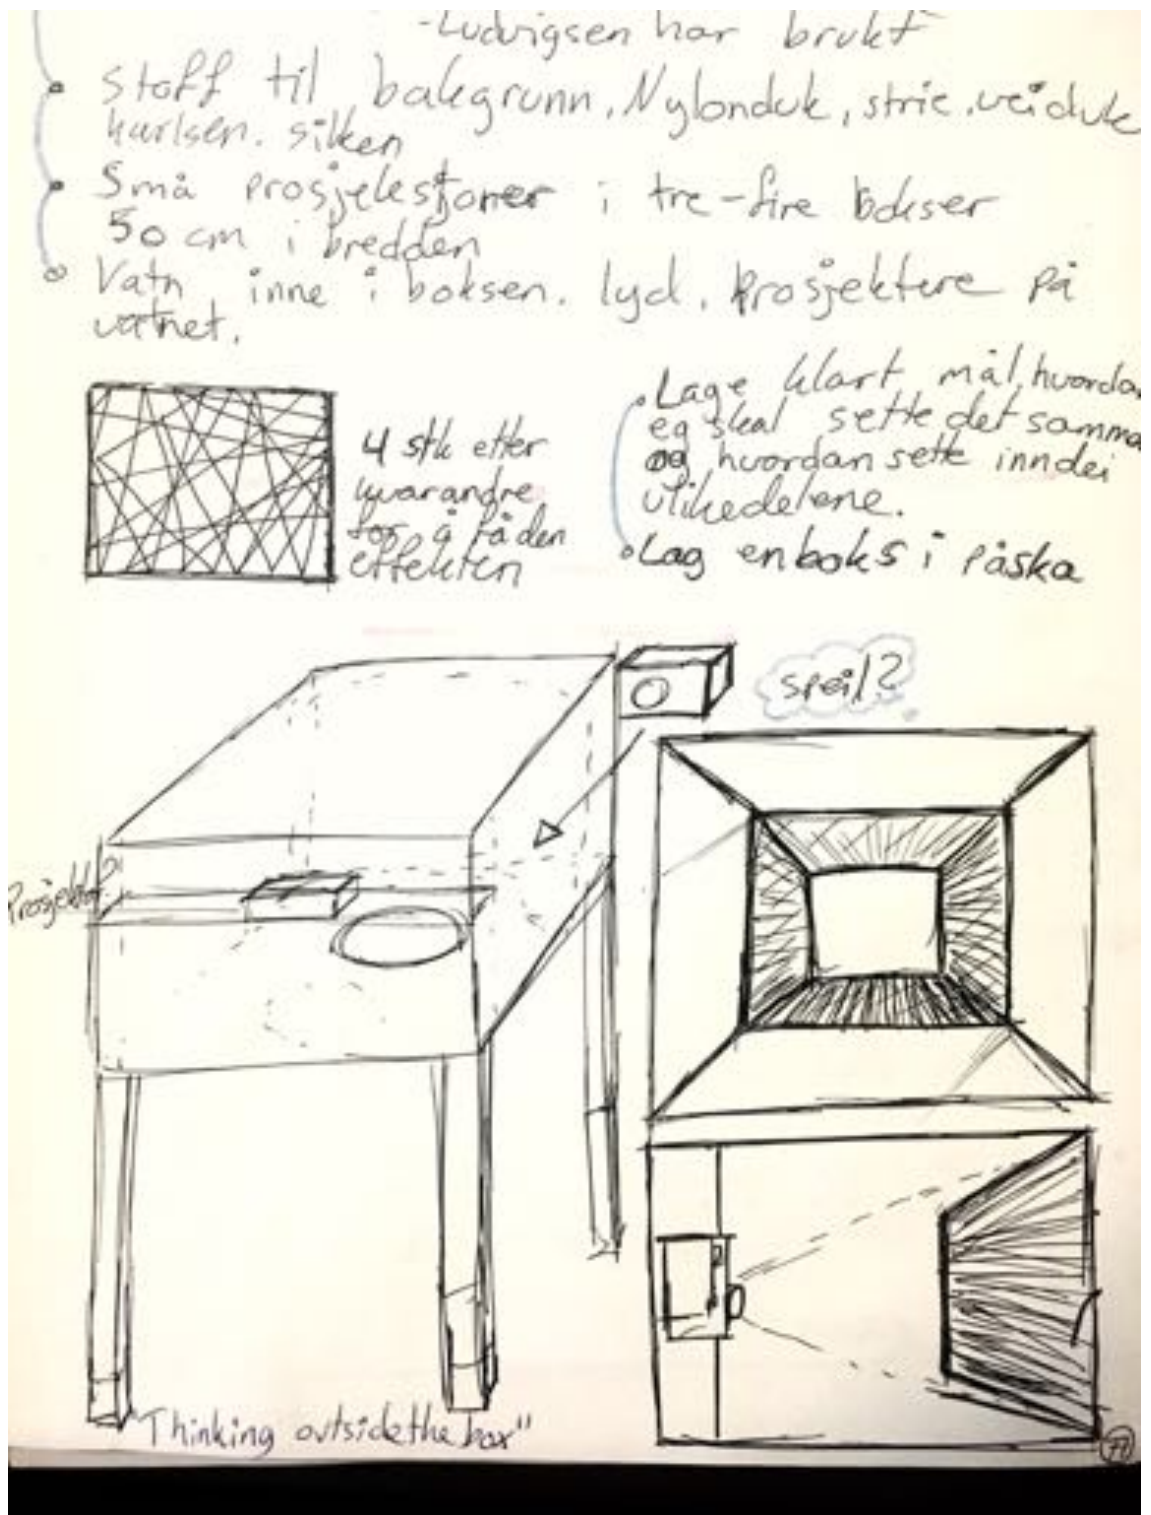 -Ludvigsen har brukt
Stoff til bakgrunn, Nylonduk, strie, veiduk
karlsen. silken
Små prosjeksjoner i tre-fire bokser
50 cm i bredden
Vatn inne i boksen. lyd. Prosjektere på
vatnet.
4 stk etter
kvarandre
for å få den
effekten
Lage klart mål, hvorda
eg skal sette det samma
og hvordan sette inn dei
ulike delene.
Lag en boks i påska
speil?
Prosjektor?
"Thinking outside the box"
77